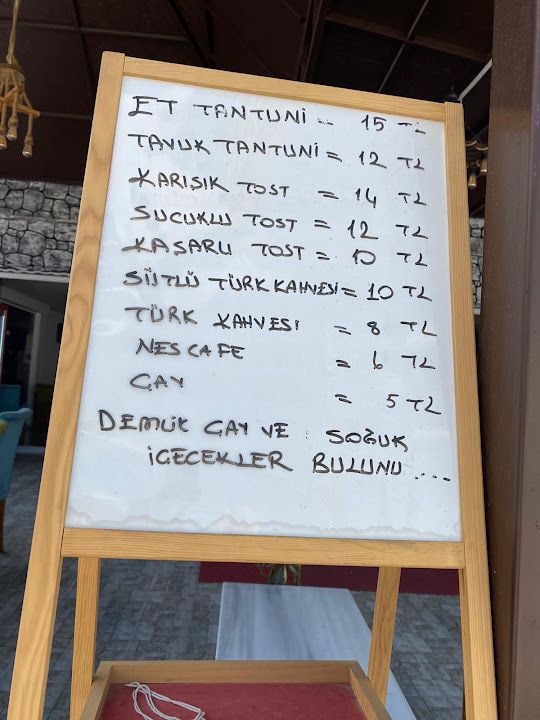 ET TANTUNİ = 15 TL
TAVUK TANTUNİ = 12 TL
KARIŞIK TOST = 14 TL
SUCUKLU TOST = 12 TL
KAŞARLI TOST = 10 TL
SÜTLÜ TÜRK KAHVESİ = 10 TL
TÜRK KAHVESİ = 8 TL
NESCAFE = 6 TL
ÇAY = 5 TL
DEMLİK ÇAY VE SOĞUK
İÇECEKLER BULUNU...